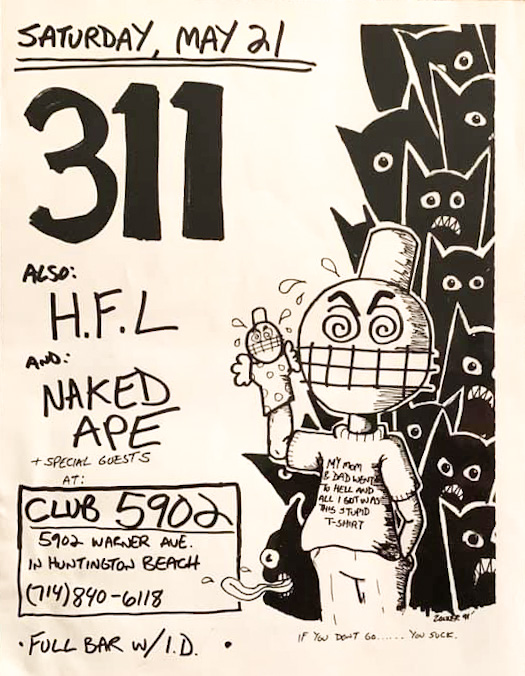 SATURDAY, MAY 21
311
ALSO:
H.F.L
AND:
NAKED
APE
+ SPECIAL GUESTS
AT:
CLUB 5902
5902 WARNER AVE.
IN HUNTINGTON BEACH
(714)840-6118
• FULL BAR W/I.D. •
MY MOM
& DAD WENT
TO HELL AND
ALL I GOT WAS
THIS STUPID
T-SHIRT
IF YOU DON'T GO...... YOU SUCK.